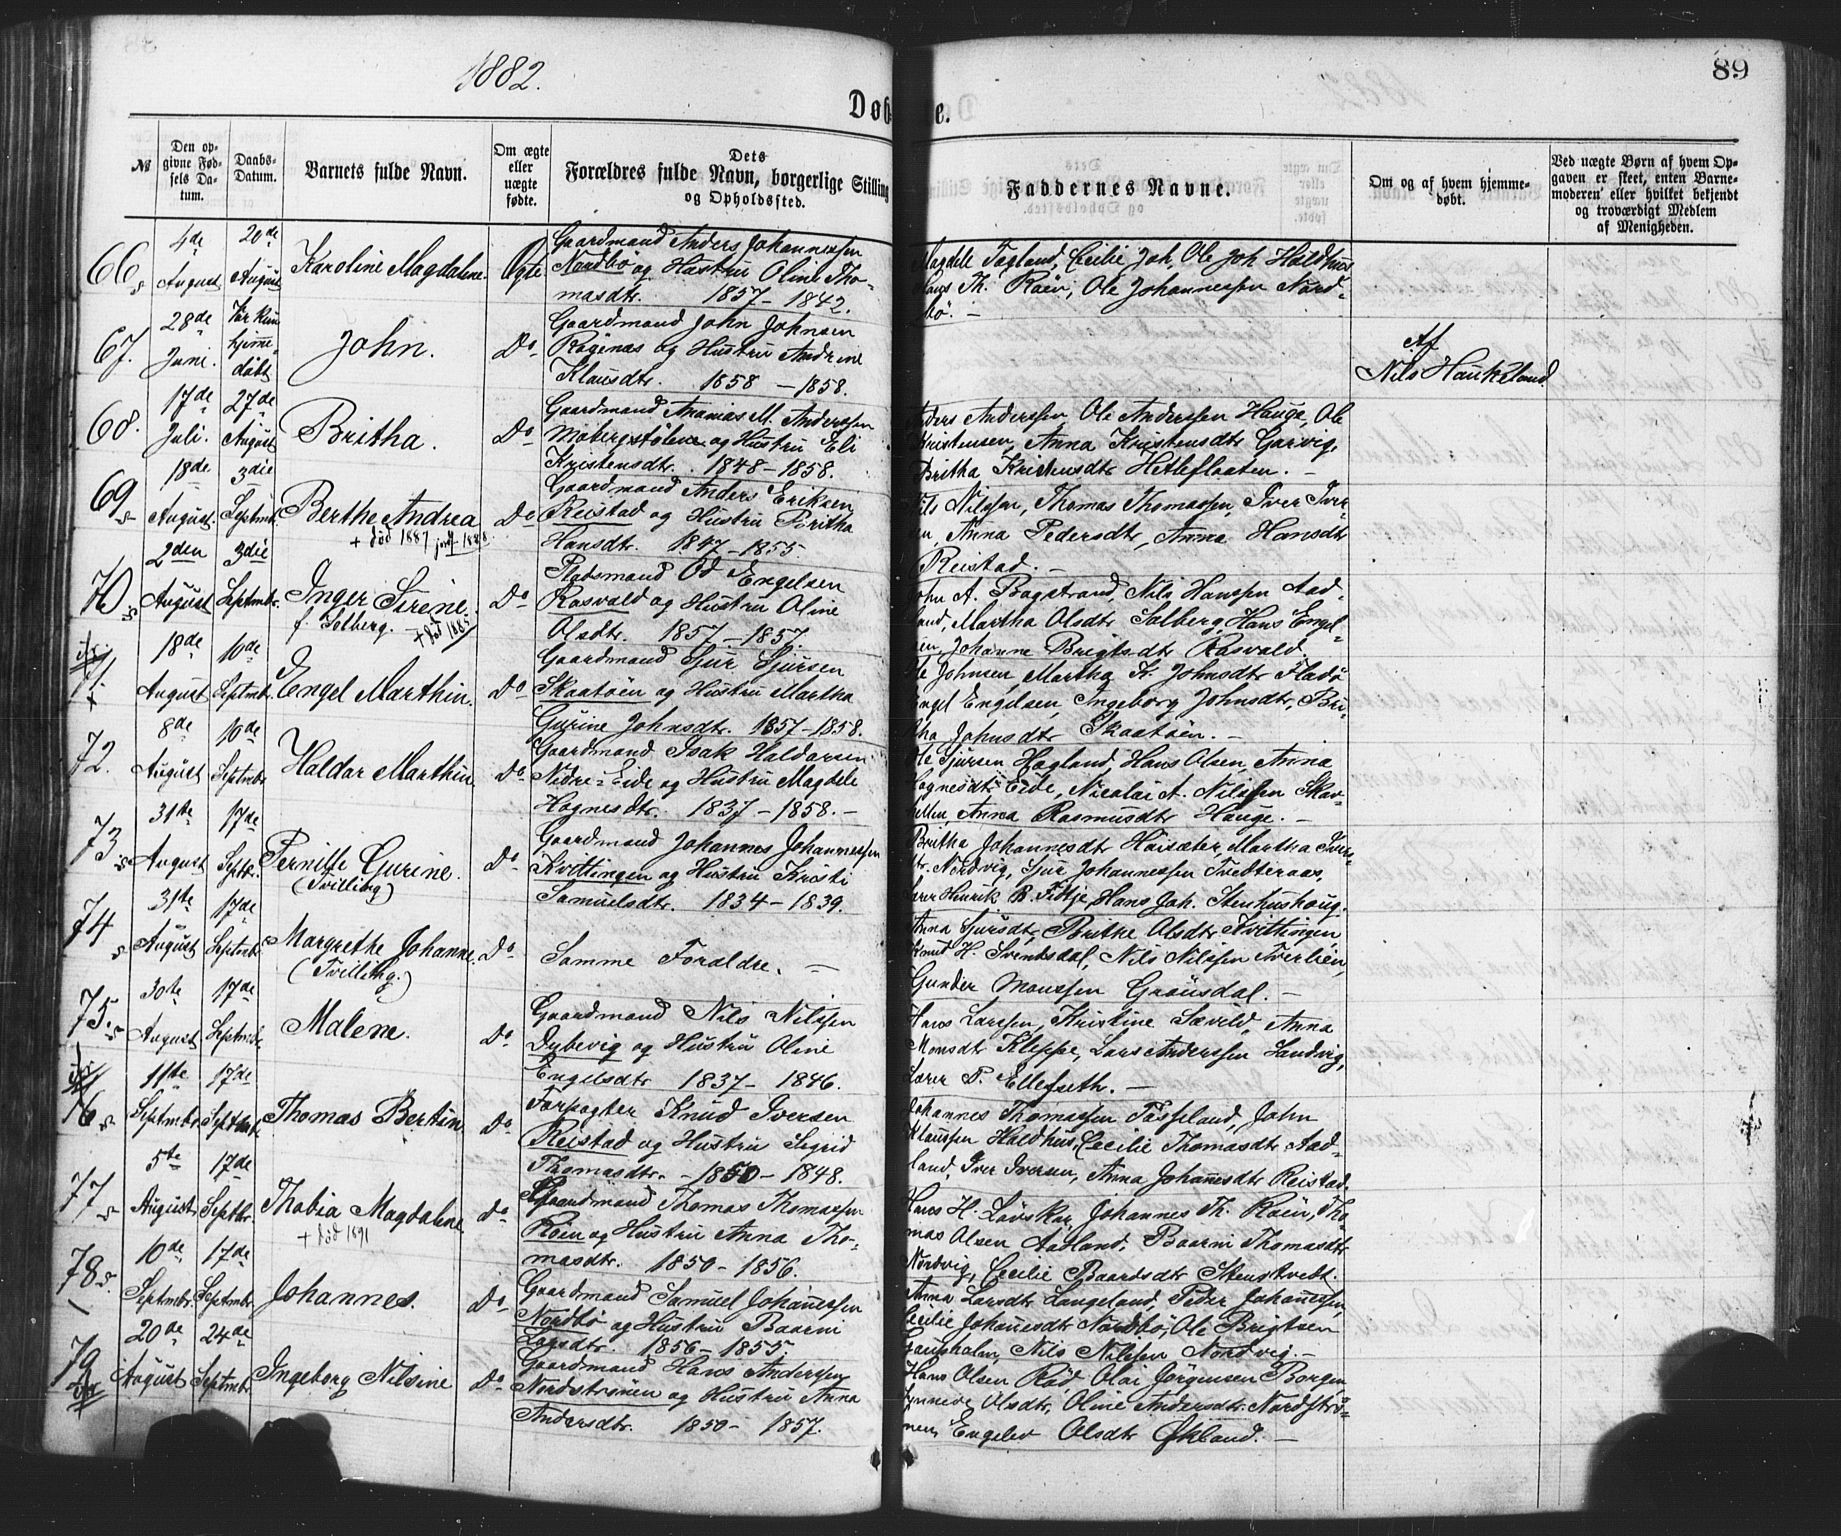 1882.
89
Døbte.
№
Den opgivne Fødsels Datum.
Daabs-Datum.
Barnets fulde Navn.
Om ægte eller uægte fødte.
Dets Forældres fulde Navn, borgerlige Stilling og Opholdssted.
Faddernes Navne.
Om og af hvem hjemmedøbt.
Ved uægte Børn af hvem Opgaven er skeet, enten Barnemoderen eller hvilket bekjendt og troværdigt Medlem af Menigheden.
66
4de August
20de August
Karoline Magdalene.
Ægte
Gaardmand Anders Johannessen
Nordbø og Hustru Oline Tho-
masdtr. 1857 - 1842.
Magdele Tagland, Cecilie Joh, Ole Joh Haldhus
Hans Th. Røen, Ole Johannessen Nord-
bø. -
67.
28de Juni.
hjemme-
døbt
John.
Do
Gaardmand John Johnsen
Røgenæs og Hustru Andrine
Klausdtr. 1858 - 1858.
Af
Nils Haukeland
68.
17de Juli.
27de August
Britha.
Do
Gaardmand Ananias M. Anderssen
Mobergstølene og Hustru Eli
Kristensdtr. 1848 - 1858.
Anders Anderssen, Ole Anderssen Hauge, Ole
Kristensen, Anna Kristensdtr Garvig,
Britha Kristensdtr Hetlefleaten. -
69
18de August.
3die Septmbr.
Berthe Andrea
+ død 1887
Do
Gaardmand Anders Eriksen
Reistad og Hustru Britha
Hansdtr. 1847 - 1855
Nils Nilssen, Thomas Thomassen, Iver Iver-
sen, Anna Pedersdtr, Anna Hansdtr
Reistad. -
70
2den August
3die Septmbr.
Inger Sirine.
f. Solberg. + død 1885
Do
Pladsmand Od Engelsen
Rosvald og Hustru Oline
Olsdtr. 1857 - 1857.
John A. Bogstrand, Nils Hanssen Aad-
land, Martha Olsdtr Solberg, Hans Engel-
sen, Johanne Brigtsdtr Rosvald.
71.
18de August
10de Septmbr.
Engel Marthin.
Do
Gaardmand Sjur Sjursen
Skaatøen og Hustru Martha
Gurine Johnsdtr. 1857 - 1858.
Ole Johnsen, Martha K. Johnsdtr Fladø
Engel Engelsen, Ingeborg Johnsdtr, Bri-
tha Johnsdtr Skaatøen. -
72.
8de August
10de Septmbr
Haldor Marthin
Do
Gaardmand Isak Haldorsen
Nedre-Eide og Hustru Magdele
Hognesdtr. 1837 - 1858. -
Ole Sjursen Hagland, Hans Olsen, Anna
Hognesdtr Eide, Nicolai A. Nilssen Skor-
hellen, Anna Rasmusdtr Hauge. -
73
31te August
17de Septbr.
Pernille Gurine.
(Tvilling)
Do
Gaardmand Johannes Johannessen
Kvittingen og Hustru Kristi
Samuelsdtr. 1834 - 1839.
Britha Johannesdtr Høisæter, Martha Ivers-
dtr. Nordvig, Sjur Johannessen Tvedteraas,
Lærer Henrik B. Fidtje, Hans Joh. Stenhushoug.
74
31te August
17de Septmbr.
Margrethe Johanne.
(Tvilling.)
Do
Samme Forældre. -
Anna Sjursdtr, Brithe Olsdtr Kvittingen
Knud H. Svendsdal, Nils Nilssen Tverlien,
Gunder Monssen Grønsdal. -
75.
30te August
17de Septmbr.
Malene.
Do
Gaardmand Nils Nilssen
Dybevig og Hustru Oline
Engelsdtr 1837 - 1846.
Hans Larssen, Kristine Sævild, Anna
Monsdtr Kleppe, Lars Anderssen Sandvig,
Lærer P. Ellefseth. -
76
11te Septmbr.
17de Septmbr.
Thomas Bertin
Do
Forpagter Knud Iversen
Reistad og Hustru Sigrid
Thomasdtr. - 1850 - 1848.
Johannes Thomassen Tøsseland, John
Klaussen Haldhus, Cecilie Thomasdtr Aad-
land, Iver Iversen, Anna Johannesdtr Reistad.
77
5te August
17de Septbr.
Thobia Magdalene
+ død 1891
Do
Gaardmand Thomas Thomassen
Røen og Hustru Anna Tho-
masdtr. 1850 - 1856.
Hans H. Løvskar, Johannes Th. Røen, Tho-
mas Olsen Aadland, Baarni Thomasdtr
Nordvig, Cecilie Baardsdtr Stenskvedt.
78
10de Septmbr.
17de Septmbr
Johannes.
Do
Gaardmand Samuel Johannessen
Nordbø og Hustru Baarni
Larsdtr. 1856 - 1855.
Anna Larsdtr Langeland, Peder Johannessen,
Cecilie Johannesdtr Nordbø, Ole Brigtsen
Gaupholm, Nils Nilssen Nordvig. -
79
20de August
24de Septmbr.
Ingeborg Nilsine
Do
Gaardmand Hans Anderssen
Nordstrønen og Hustru Anna
Andersdtr. 1850 - 1857.
Hans Olsen Rød, Olai Jørgensen Borgen
Synneve Olsdtr, Oline Andersdtr Nordstrø-
nen, Engelev Olsdtr Økland. -